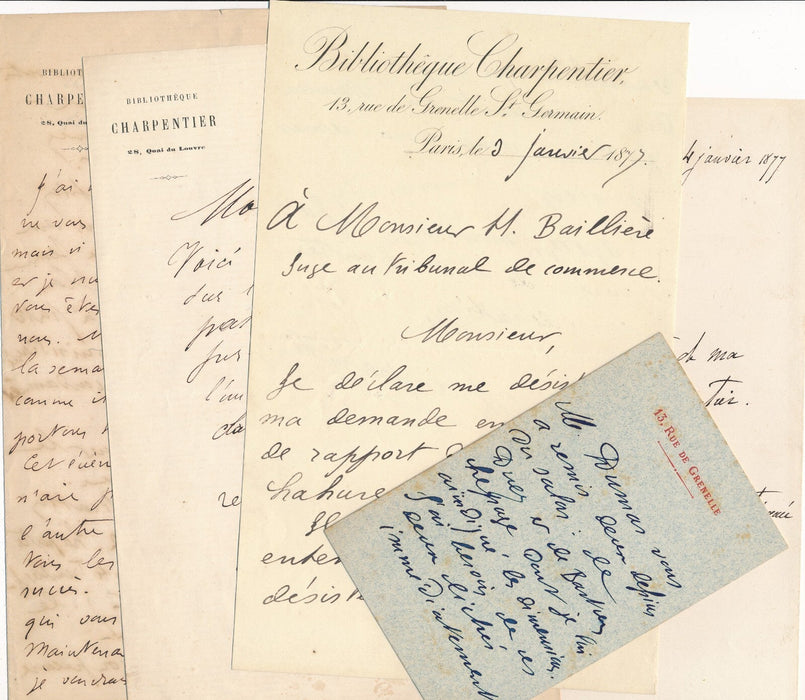 BIBLIOT
CHARPE
28, Quai du
J'ai
ne vous
mais
er je
vous êtes
nous.
la sema
comme
portons
Cet évén
n'aie
l'autre
vous les
succès.
qui vous
Maintena
je voudrais
BIBLIOTHÈQUE
CHARPENTIER
28, Quai du Louvre
Mo
Voici
sur l
par
sur
l'un
cla
re
Bibliothèque Charpentier,
13, rue de Grenelle St Germain.
Paris, le 3 janvier 1877.
À Monsieur H. Baillière
Juge au tribunal de commerce.
Monsieur,
Je déclare me désis
ma demande en
de rapport
entér
désist
4 janvier 1877
et ma
13, RUE DE GRENELLE
M. Dumas vous
a remis deux dessins
du salon : de
Duez et de Bastien
Lepage, dont je lui
ai indiqué les dimensions.
J'ai besoin de ces
deux clichés
immédiatement